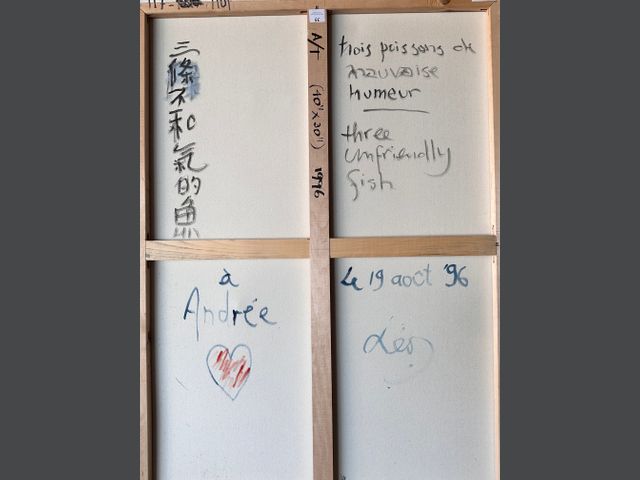 三條不和氣的魚
trois poissons de
mauvaise
humeur
three
unfriendly
fish
A/T (40"x30") 1996
à
Andrée
Le 19 août '96
Léo